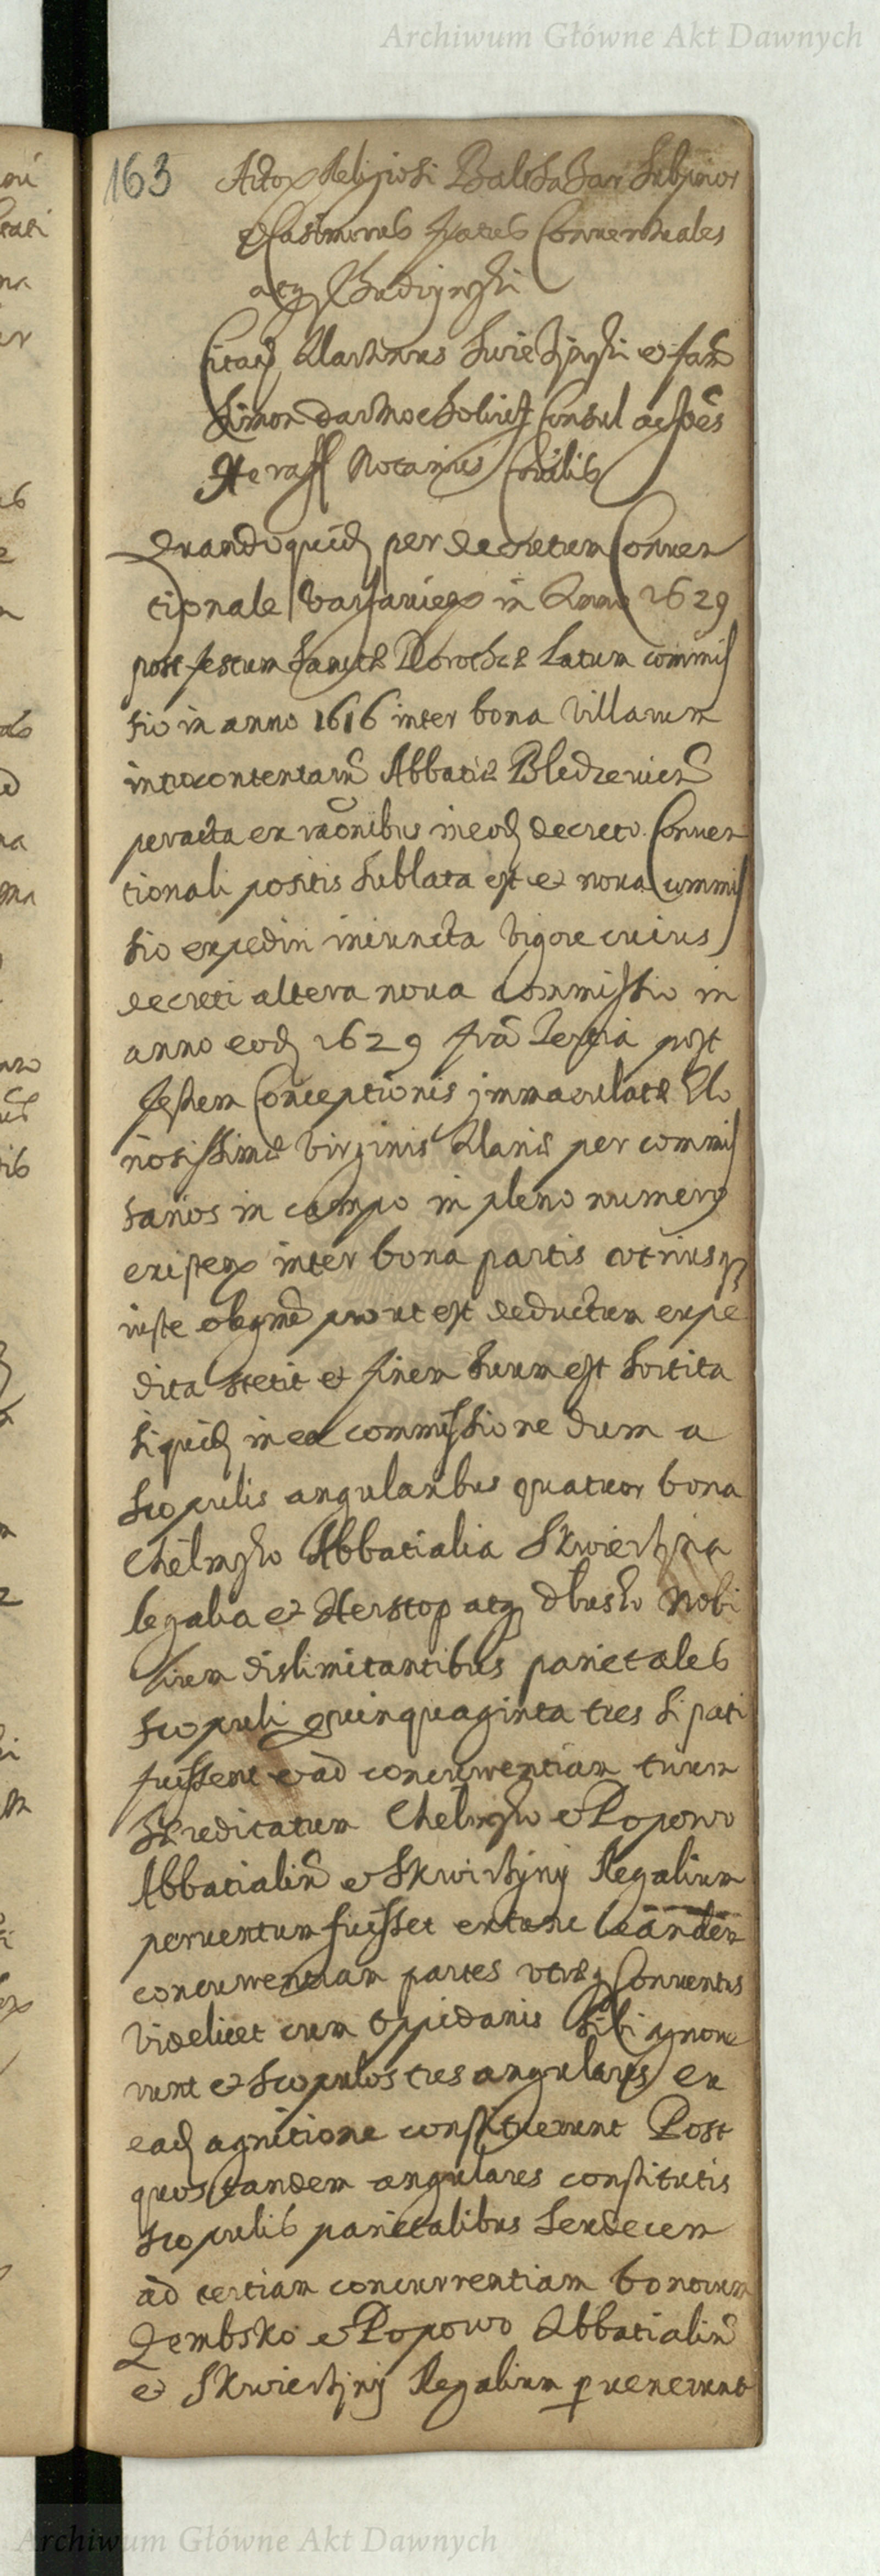 Archiwum Główne Akt Dawnych
163
Actor Religiosi Balthasar Subprior
Casimirus fratres Conventuales
atq Chudzynski
Citatq Martinus et fam
Simon Consul ac spes
Notarius
Quandoquid per decretum Conven
tionale Varsavien in Anno 1629
post festum Sanctæ Dorotheæ Latum commis
sio in anno 1616 inter bona Villarum
introcontentarum Abbatiæ Bledzeviens
peracta ex raonibus in eod decreto Conven
tionali positis Sublata est et nova Commis
sio expediri iniuncta Vigore cuius
decreti altera nova Commissio in
anno eod 1629 fra Tertia post
festum Conceptionis immaculatæ Glo
riosissimæ Virginis Mariæ per commis
sarios in campo in pleno numero
existen inter bona partis utriusq
iuste prout est deductum expe
dita stetit et finem suum est sortita
Siquid in ea commissione dum a
scopulis angularibus quatuor bona
Chelmsko Abbatialia Skwierzyna
regalia et Herstop atq Nobi
lium dislimitantibus parietales
scopuli quinquaginta tres Sipati
fuissent et ad concurrentiam trium
Hæreditatum Chelmsko et Popowo
Abbatialium et Skwirzyny Regalium
perventum fuisset extunc eandem
concurrentiam partes utræq Conventus
Videlicet cum Oppidanis Sibi agnove
runt et scopulos tres angulares ex
ead agnitione constituerunt Post
quos tandem angulares constitutis
scopulis parietalibus Sexdecem
ad tertiam concurrentiam bonorum
Zembsko et Popowo Abbatialium
et Skwierzyny Regalium pvenerunt
Archiwum Główne Akt Dawnych